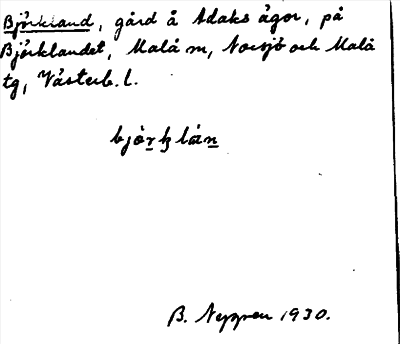 Björkland, gård å Adaks ägor, på
Björklandet, Malå sn, Norsjö och Malå
tg, Västerb. l.
björk lán
B. 1930.